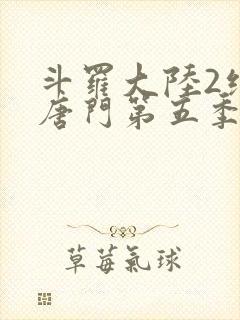 斗羅大陸2絕
唐門第五季
草莓氣球